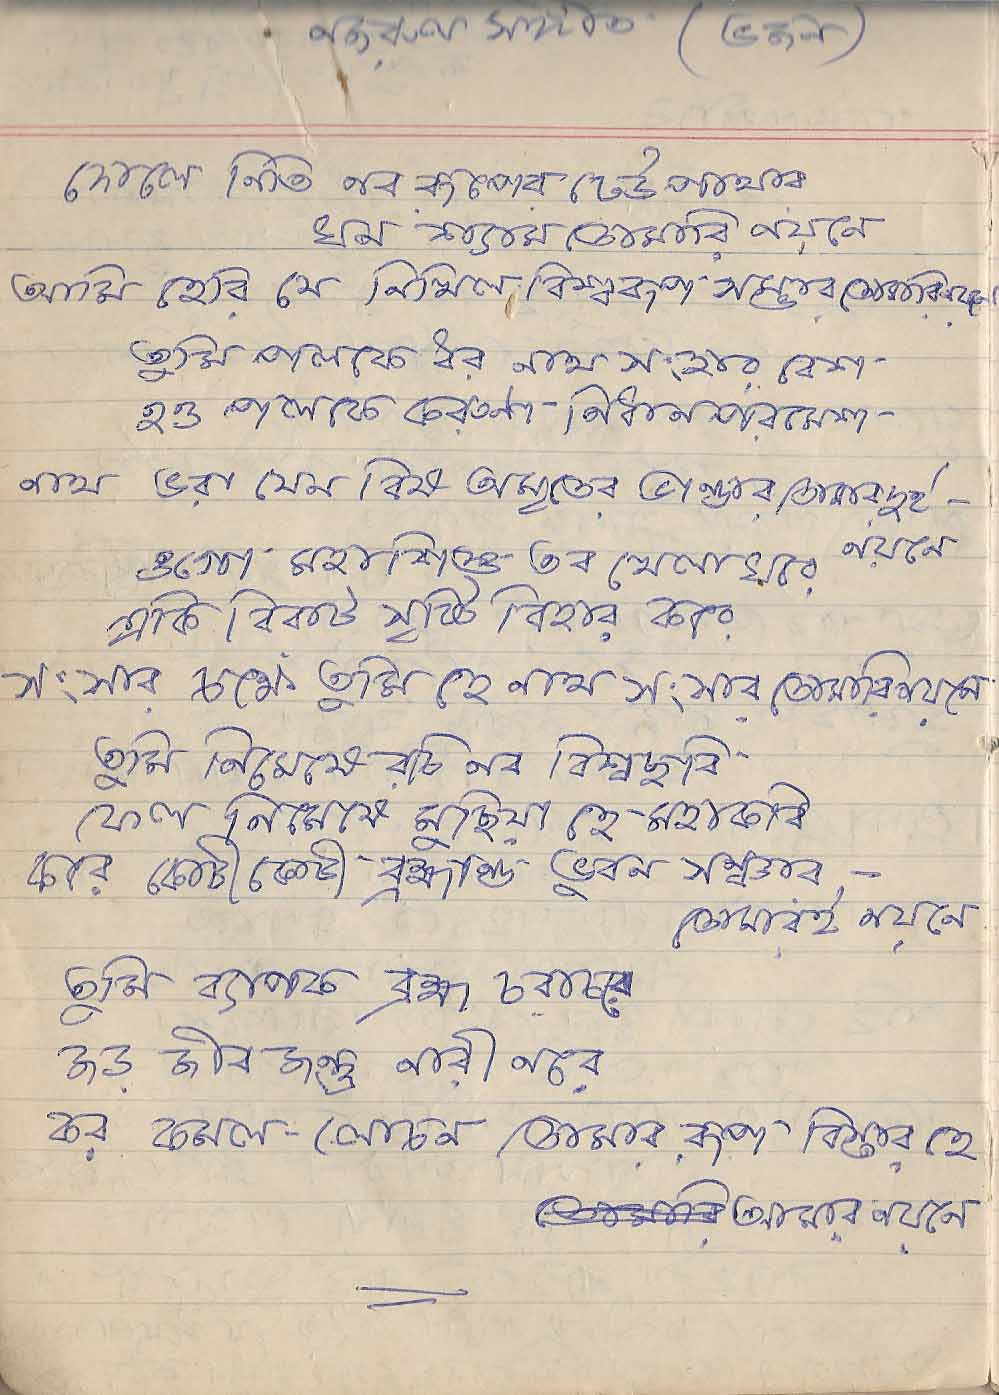 নজরুল সঙ্গীত (ভজন)
দোলে নিতি নব রূপের ঢেউ পাথার
ঘন শ্যাম তোমারি নয়নে
আমি হেরি যে নিখিল বিশ্বরূপ সম্ভার তোমারি নয়নে
তুমি পলকে ধর নাথ সংহার বেশ
হও পলকে করুণা নিধান পরমেশ
নাথ ভরা যেন বিষ অমৃতের ভাণ্ডার তোমার দুই
নয়নে
ওগো মহা শিশু তব খেলা ঘরে
একি বিরাট সৃষ্টি বিহার করে
সংসার চক্ষে তুমি হে নাথ সংসার তোমারি নয়নে
তুমি নিমেষে রচি নব বিশ্বছবি
ফেল নিমেষে মুছিয়া হে মহাকবি
করে কোটী কোটী ব্রহ্মাণ্ড ভুবন সঞ্চার
তোমারই নয়নে
তুমি ব্যাপক ব্রহ্ম চরাচরে
জড় জীব জন্তু নারী নরে
কর কমল-লোচন তোমার রূপ বিস্তার হে
তোমারি আমার নয়নে